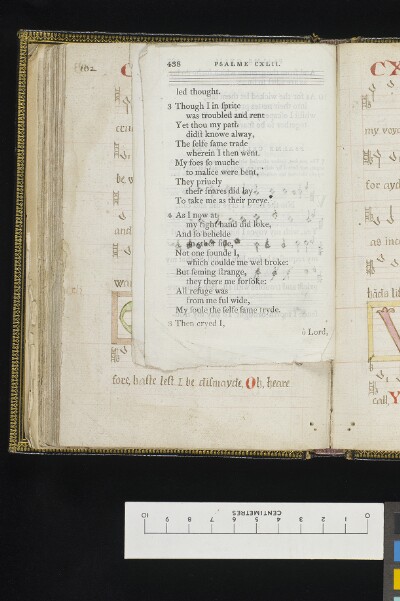 182
C
458 PSALME CXLII.
sed thought.
3 Though I in sprite
was troubled and rent
Yet thou my path
didst knowe alway,
The selfe same trade
wherein I then went.
My foes so muche
to malice were bent,
They priuely
theyr snares did lay
To take me as their preye.
4 As I now at
my right hand did loke,
And so behelde
side,
Not one founde I,
which coulde me wel broke:
But seming strange,
they there me forsoke:
All refuge was
from me ful wide,
My soule the selfe same tryde.
5 Then cryed I,
o Lord,
be
and
fore, haste lest I be dismayde. Oh, heare
CX
my voyc
for ayd
as ince
hāds lif
call, Y
CENTIMETRES
10 9 8 7 6 5 4 3 2 1 0